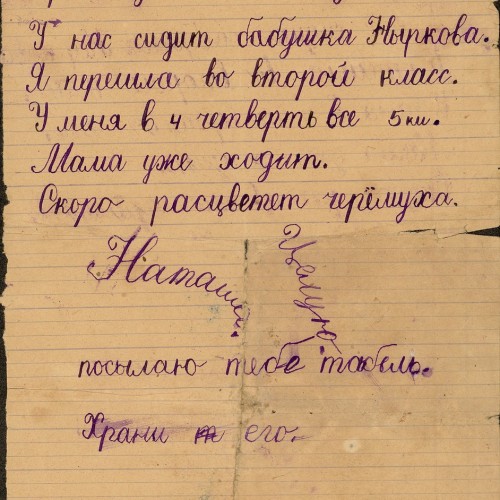 У нас сидит бабушка Ныркова.
Я перешла во второй класс.
У меня в 4 четверть все 5ки.
Мама уже ходит.
Скоро расцветет черёмуха.
Целую.
посылаю тебе табель.
Храни т его.